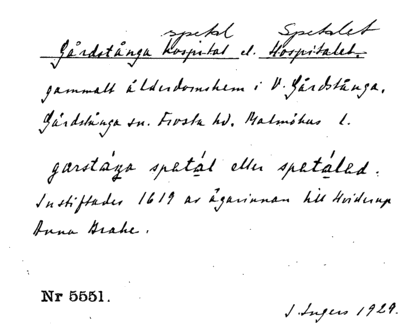 spekl Speklet
Gårdstånga Hospital el. Hospitalet.
gammalt ålderdomshem i V. Gårdstånga,
Gårdstånga sn. Frosta hd. Malmöhus l.
garstáŋa spetál eller spetáled.
Instiftades 1619 av ägarinnan till Hviderup
Anna Brahe.
Nr 5551.
I. Ingers 1929.